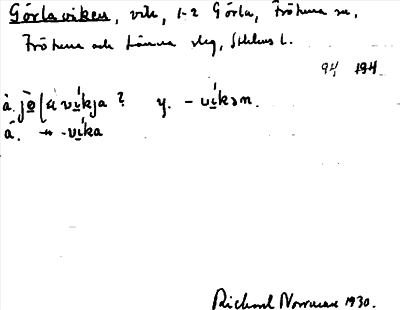 Görlaviken, vik, 1-2 Görla, Frötuna sn,
Frötuna och Länna slg, Sthlms l.
94 194
à. jö̀[a víkja ? y. - víkən.
â. -víka
Richard Norrman 1930.